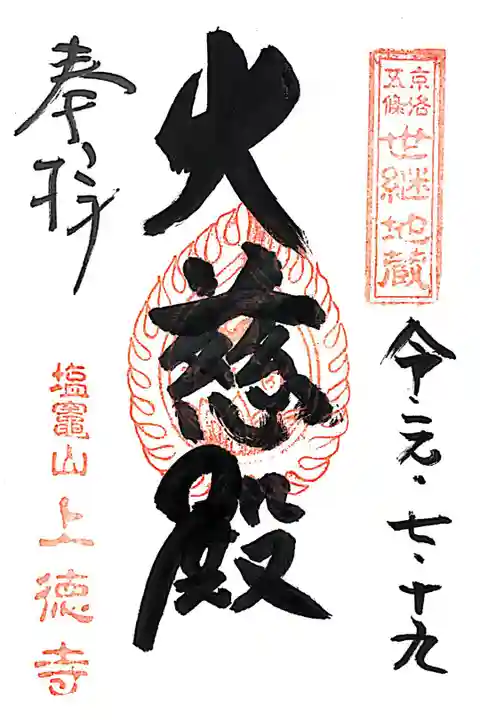 京洛五條 世継地蔵
令・元・七・十九
大慈殿
奉拝
塩竈山 上徳寺